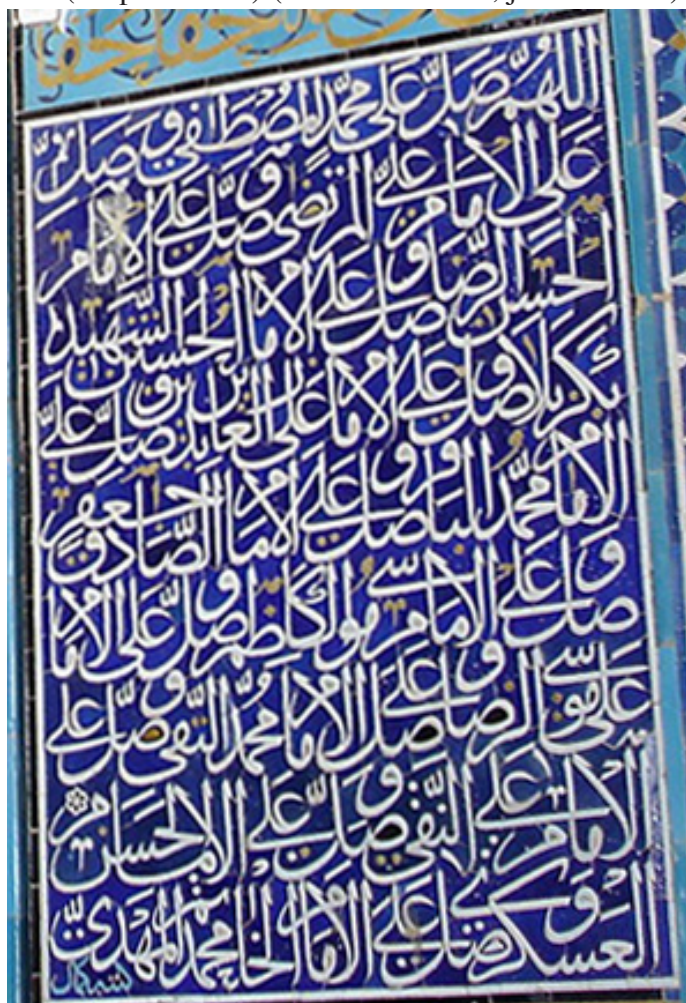 اللهم صل على محمد المصطفى و صل
على الامام علي المرتضى و صل على الامام
الحسن الرضا و صل على الامام الحسين الشهيد
بكربلا و صل على الامام علي زين العابدين و صل على
الامام محمد الباقر و صل على الامام جعفر الصادق
و صل على الامام موسى الكاظم و صل على الامام
علي موسى الرضا و صل على الامام محمد التقي و صل على
الامام علي النقي و صل على الامام الحسن
العسكري و صل على الامام محمد المهدي